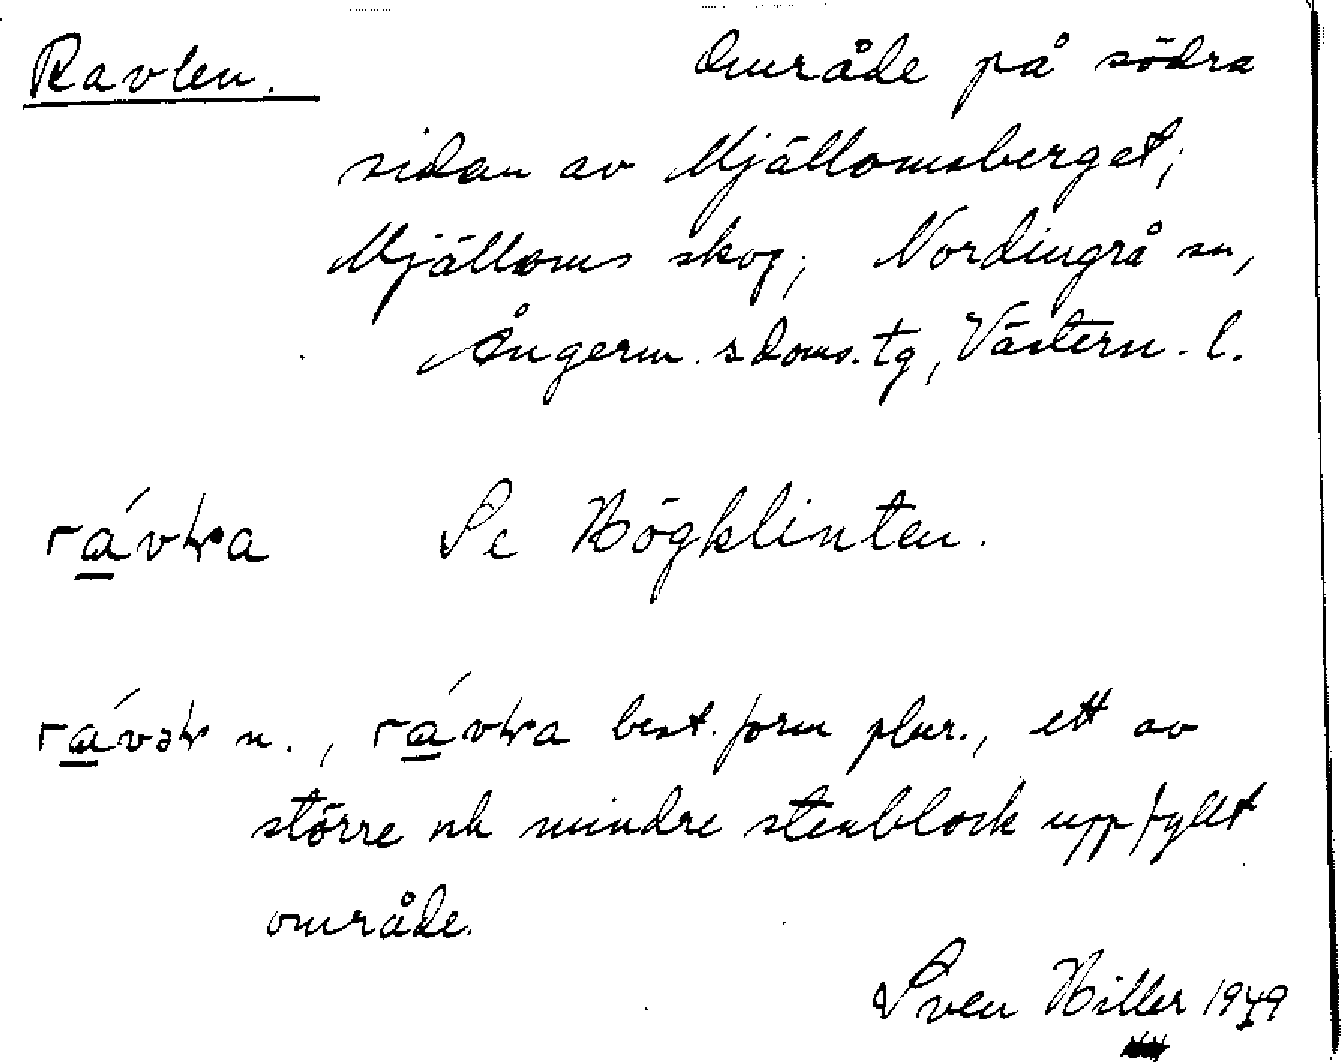 Ravlen. Område på södra
sidan av Mjällomsberget;
Mjälloms skog; Nordingrå sn,
Ångerm. s doms. tg, Västern. l.
Se Högklinten.
n., best. form plur., ett av
större och mindre stenblock uppfyllt
område.
Sven Hiller 1949